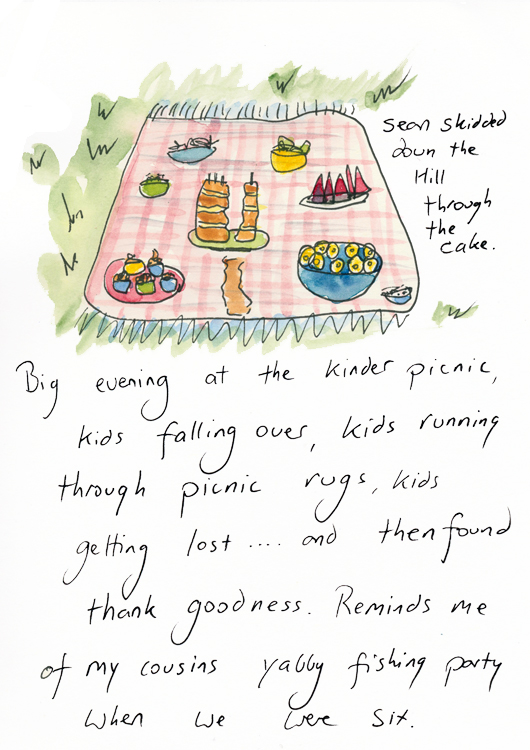 Sean skidded
down the
Hill
through
the
cake.
Big evening at the kinder picnic,
kids falling over, kids running
through picnic rugs, kids
getting lost .... and then found
thank goodness. Reminds me
of my cousins yabby fishing party
when we were six.